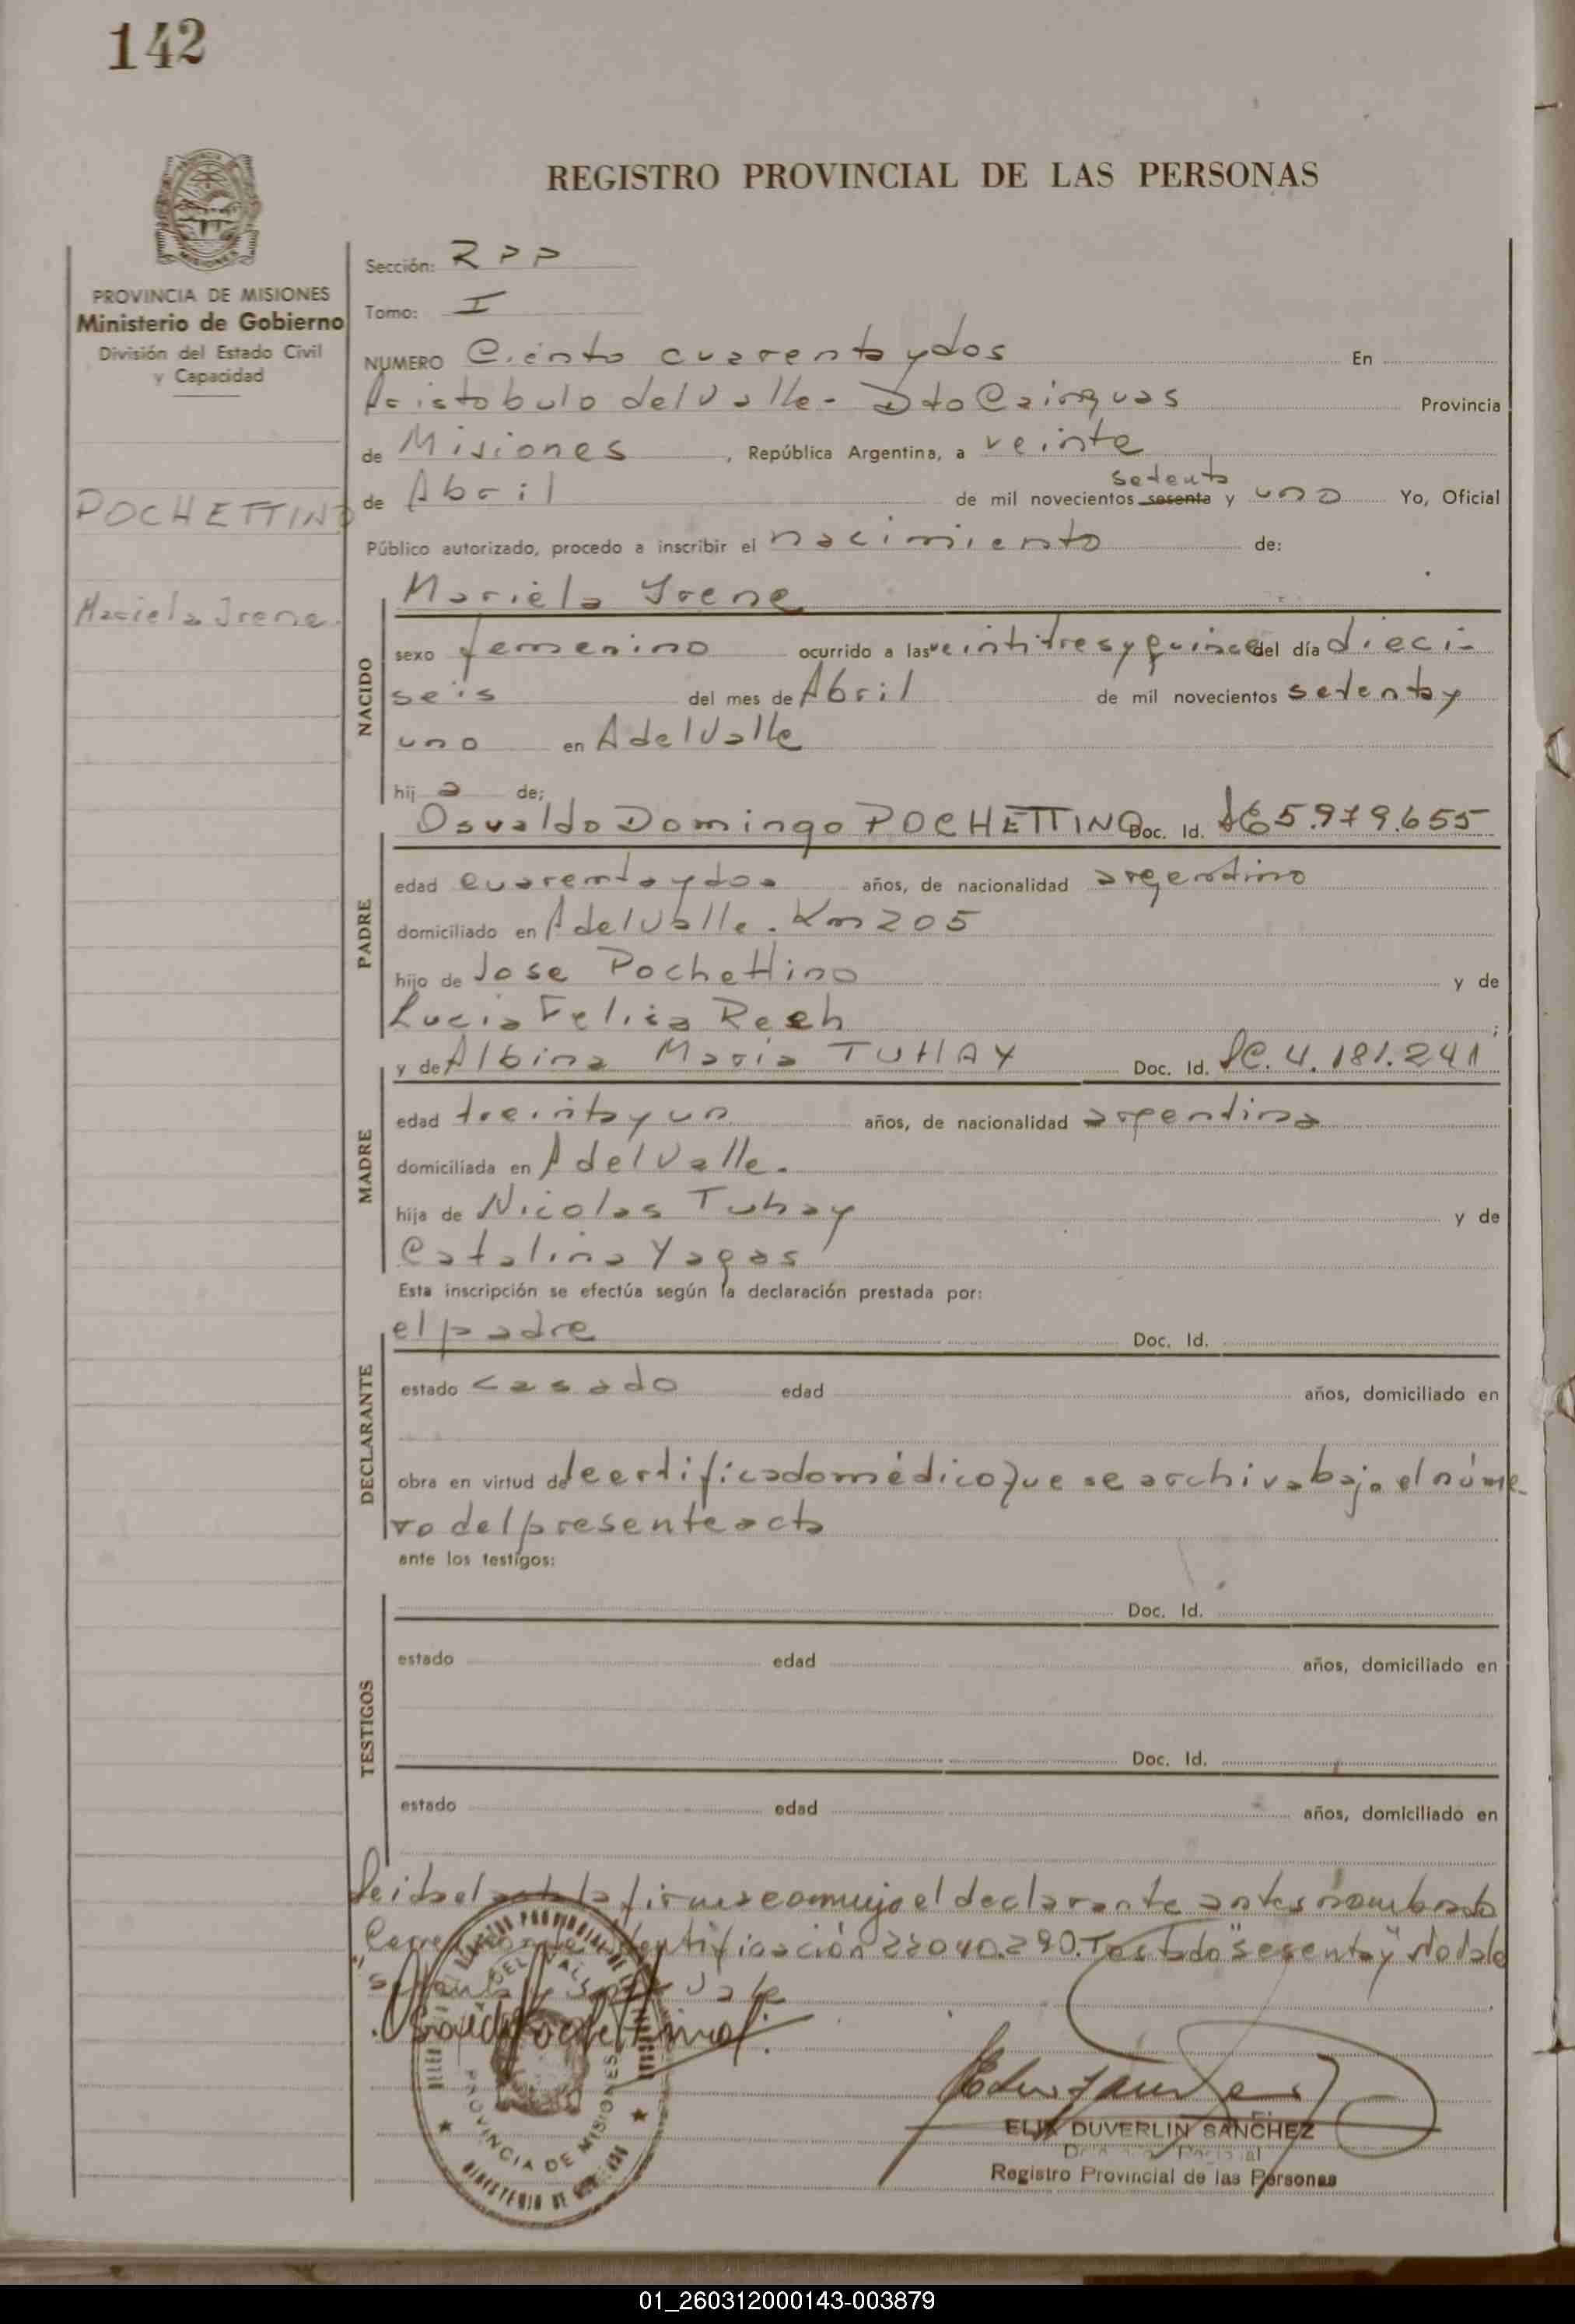 142
REGISTRO PROVINCIAL DE LAS PERSONAS
PROVINCIA DE MISIONES
Ministerio de Gobierno
División del Estado Civil
y Capacidad
POCHETTINO
Mariela Irene
Sección: RPP
Tomo: I
NUMERO Ciento cuarenta y dos En
Aristobulo del Valle - Dto Cainguas Provincia
de Misiones, República Argentina, a veinte
setenta
de Abril de mil novecientos sesenta y uno Yo, Oficial
Público autorizado, procedo a inscribir el nacimiento de:
NACIDO
Mariela Irene
sexo femenino ocurrido a las veintitres y quince del día dieci-
seis del mes de Abril de mil novecientos setenta y
uno en A del Valle
hija de;
PADRE
Osvaldo Domingo POCHETTINO Doc. Id. 5.979.655
edad cuarenta y dos años, de nacionalidad argentino
domiciliado en A del Valle. Km 205
hijo de Jose Pochettino y de
Lucia Felisa Rech;
MADRE
y de Albina Maria TUHAY Doc. Id. LC. 4.181.241
edad treinta y un años, de nacionalidad argentina
domiciliada en A del Valle.
hija de Nicolas Tuhay y de
Catalina Yagas
Esta inscripción se efectúa según la declaración prestada por:
DECLARANTE
el padre Doc. Id.
estado casado edad años, domiciliado en
obra en virtud de certificado médico que se archiva bajo el núme-
ro del presente acta
ante los testigos:
TESTIGOS
Doc. Id.
estado edad años, domiciliado en
Doc. Id.
estado edad años, domiciliado en
Leida el acta la firma conmigo el declarante antes nombrado
identificación 22040.290. Testado "sesenta y"
Vale
PROVINCIA DE MISIONES
MINISTERIO DE
ELIX DUVERLIN SANCHEZ
Registro Provincial de las Personas
01_260312000143-003879